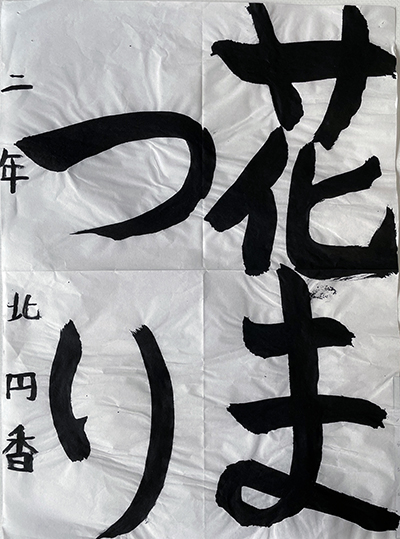 花ま
つり
二年 北円香